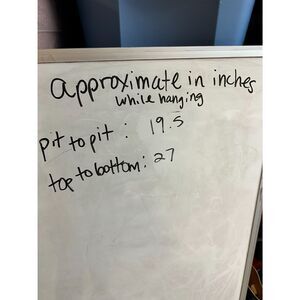 approximate in inches
while hanging
pit to pit: 19.5
top to bottom: 27